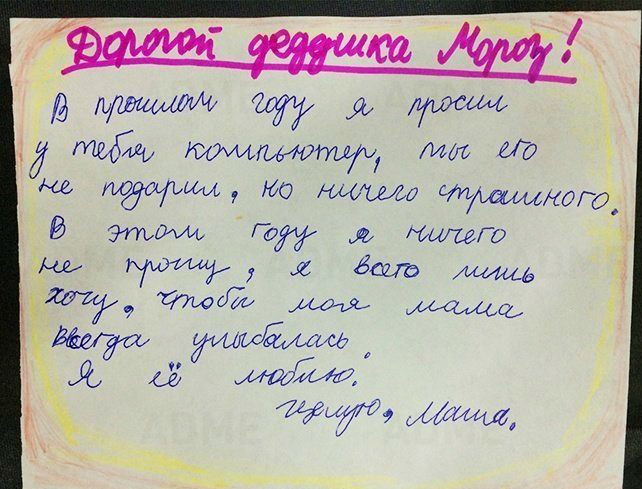 Дорогой дедушка Мороз!
В прошлом году я просил
у тебя компьютер, ты его
не подарил, но ничего страшного.
В этом году я ничего
не прошу, я всего лишь
хочу, чтобы моя мама
всегда улыбалась.
Я её люблю.
целую, Маша.